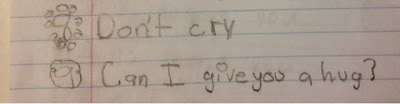 Don't cry
Can I give you a hug?